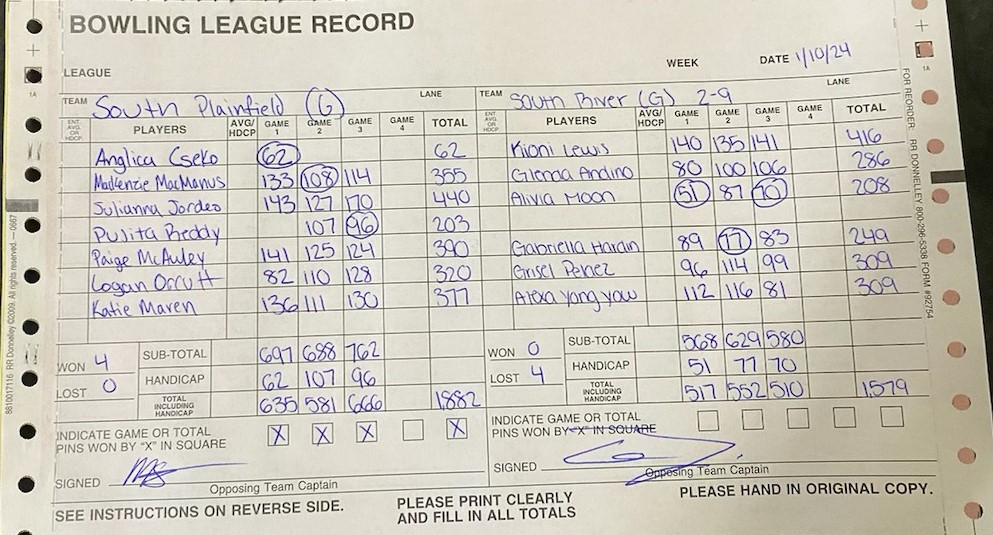 BOWLING LEAGUE RECORD
WEEK DATE 1/10/24
LEAGUE
TEAM South Plainfield (G) LANE
ENT. AVG. OR HDCP. PLAYERS AVG/HDCP GAME 1 GAME 2 GAME 3 GAME 4 TOTAL
Anglica Cseko 62 62
Mackenzie MacManus 133 108 114 355
Julianna Jordeo 143 127 170 440
Pujita Reddy 107 96 203
Paige McAuley 141 125 124 390
Logan Orcutt 82 110 128 320
Katie Maren 136 111 130 377
WON 4
LOST 0
SUB-TOTAL 697 688 762
HANDICAP 62 107 96
TOTAL INCLUDING HANDICAP 635 581 666 1,882
INDICATE GAME OR TOTAL
PINS WON BY "X" IN SQUARE X X X X
SIGNED
Opposing Team Captain
TEAM South River (G) 2-9 LANE
ENT. AVG. OR HDCP. PLAYERS AVG/HDCP GAME 1 GAME 2 GAME 3 GAME 4 TOTAL
Kioni Lewis 140 135 141 416
Glenna Andino 80 100 106 286
Alivia Moon 51 87 70 208
Gabriella Hardin 89 77 83 249
Grisel Perez 96 114 99 309
Alexa Yong yow 112 116 81 309
WON 0
LOST 4
SUB-TOTAL 568 629 580
HANDICAP 51 77 70
TOTAL INCLUDING HANDICAP 517 552 510 1,579
INDICATE GAME OR TOTAL
PINS WON BY "X" IN SQUARE
SIGNED
Opposing Team Captain
SEE INSTRUCTIONS ON REVERSE SIDE.
PLEASE PRINT CLEARLY
AND FILL IN ALL TOTALS
PLEASE HAND IN ORIGINAL COPY.
8810017116 RR Donnelley ©2009. All rights reserved. — 0667
FOR REORDER: RR DONNELLEY 800-296-5338 FORM #92754
1A
1A